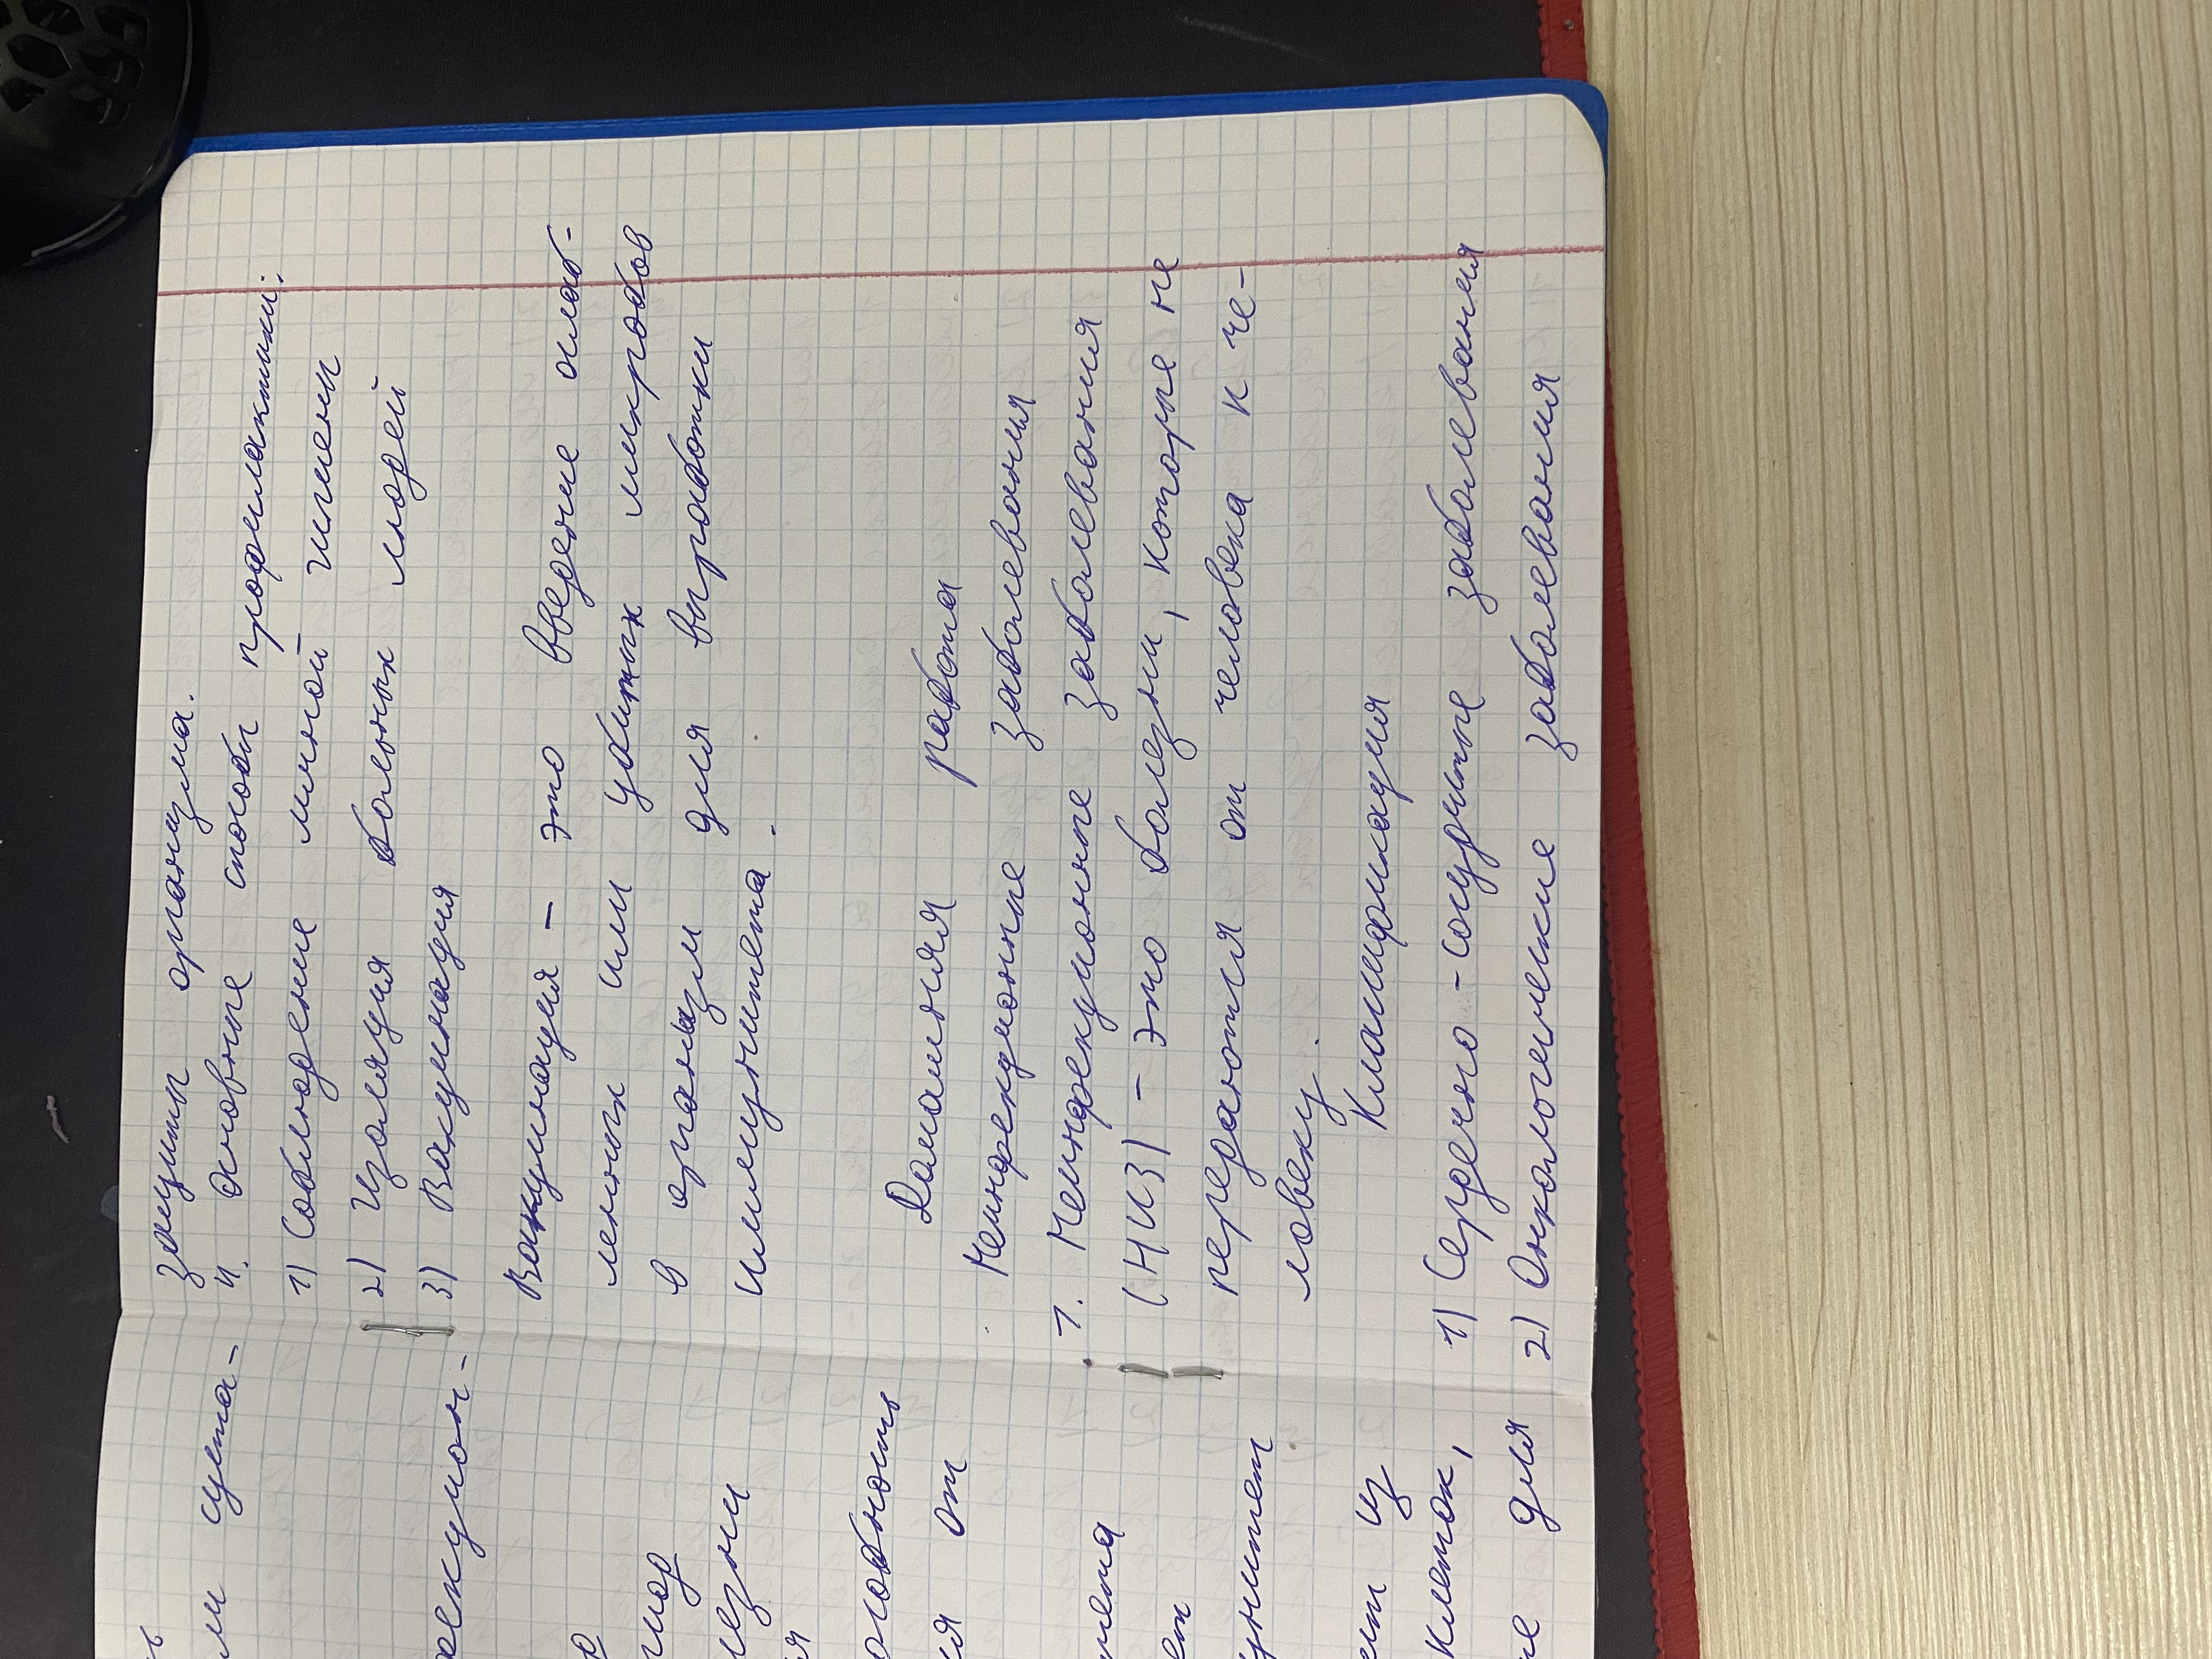 защиты организма.
4. Основные способы профилактики:
1) Соблюдение личной гигиены
2) Изоляция больных людей
3) Вакцинация
Вакцинация - это введение ослаб-
ленных или убитых микробов
в организм для выработки
иммунитета.
Домашняя работа
Неинфекционные заболевания
1. Неинфекционные заболевания
(НИЗ) - это болезни, которые не
передаются от человека к че-
ловеку.
Классификация
1) Сердечно-сосудистые заболевания
2) Онкологические заболевания
для
из
клеток,
от